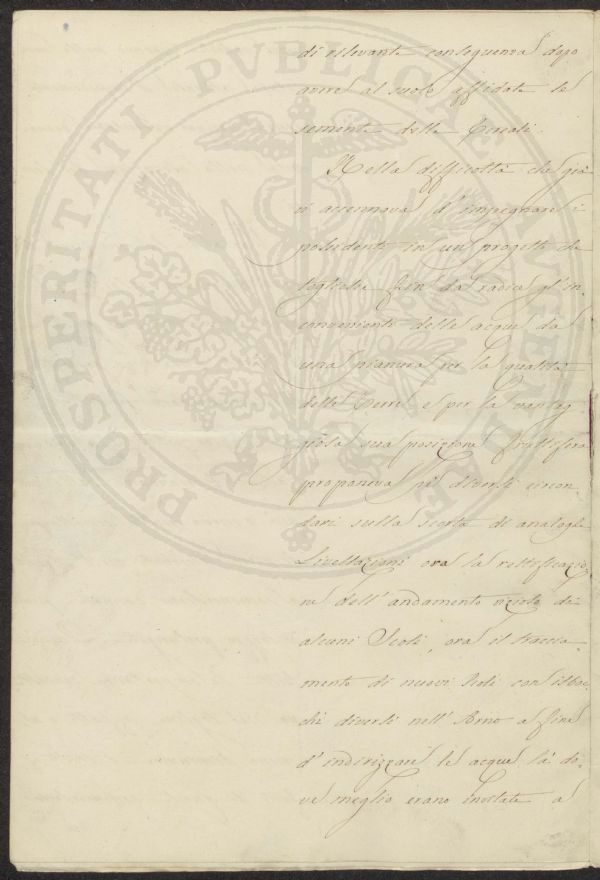 PROSPERITATI PUBLICAE AUGENDAE
di rilevante conseguenza dopo
avere al suolo affidate le
sementa delle Cereali.
Nella difficoltà che già
si accennava d'impegnare i
possidenti in un progetto che
togliesse fin da radice gl'in
conveniente delle acque da
una pianura per la qualità
delle Terre e per la vantag
giosa sua posizione fruttifera
proponeva nè diversi circon
dari sulla scorta di analoghe
Livellazioni ora la rettificazio
ne dell'andamento vizioso di
alcuni Scoli, ora il traccia
mento di nuovi Scoli con isboc
chi diversi nell'Arno a fine
d'indirizzare le acque là do
ve meglio erano inoltate a